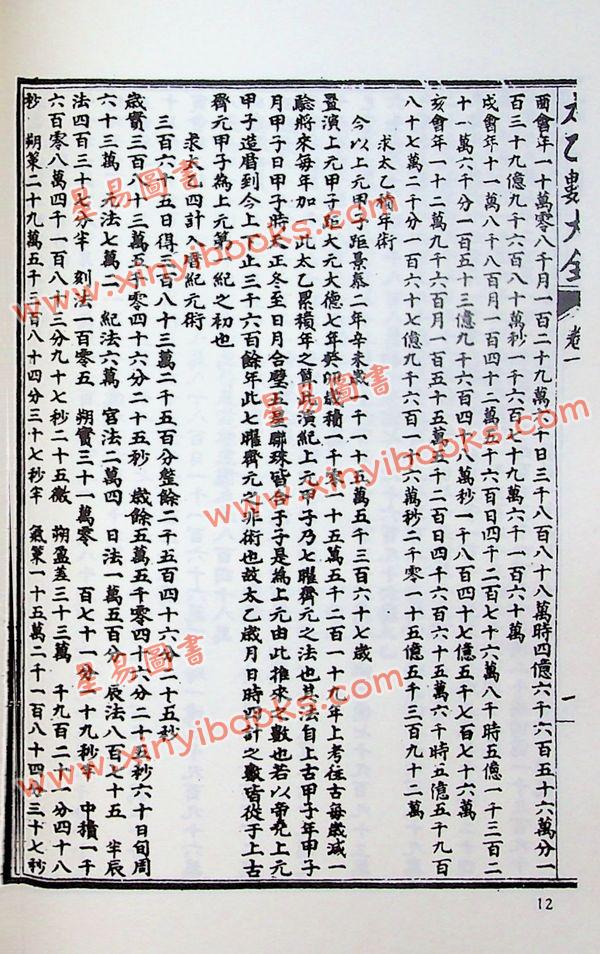 太乙數大全 卷一
一
酉會年一十萬零八千月一百二十九萬六千日三千八百八十八萬時四億六千六百五十六萬分一
百三十九億九千六百八十萬秒一千六百七十九萬六千一百六十萬
戌會年十一萬八千八百月一百四十二萬五千六百日四千二百七十六萬八千時五億一千三百二
十一萬六千分一百五十三億九千六百四十八萬秒一千八百四十七億五千七百七十六萬
亥會年一十二萬九千六百月一百五十五萬五千二百日四千六百六十五萬六千時五億五千九百
八十七萬二千分一百六十七億九千六百一十六萬秒二千零一十五億五千三百九十二萬
求太乙積年術
今以上元甲子距景泰二年辛未歲一千一十五萬五千三百六十七歲
曆演上元甲子距大元大德七年癸卯歲積一千零一十五萬五千二百一十九年上考往古每歲減一
驗將來每年加一此太乙累積年之算此演紀上元甲子乃七曜齊元之法也其法自上古甲子年甲子
月甲子日甲子時天正冬至日月合璧五星聯珠皆合于子是為上元由此推來之數也若以帝堯上元
甲子造曆到今上下止三千六百餘年此七曜齊元之非術也故太乙歲月日時四計之數皆從于上古
齊元甲子為上元第一紀之初也
求太乙四計入曆紀元術
三百六十五日得三百八十三萬二千五百分整餘二千五百四十六分二十五秒
歲實三百八十三萬五千零四十六分二十五秒 歲餘五萬五千零四十六分二十五秒六十日旬周
六十三萬 元法七萬二 紀法六萬 宮法二萬四 日法一萬五百分 辰法八百七十五 半辰
法四百三十七分半 刻法一百零五 朔實三十一萬零 百七十一分 二十九秒半 中積一千
六百零八萬四千一百八十三分九十七秒二十五微 朔盈差三十三萬 千九百二十 分四十八
秒 朔策二十九萬五千三百八十四分三十七秒半 氣策一十五萬二千一百八十四分三十七秒
12
星易圖書
www.xinyibooks.com
星易圖書
www.xinyibooks.com
星易圖書
www.xinyibooks.com
星易圖書
www.xinyibooks.com